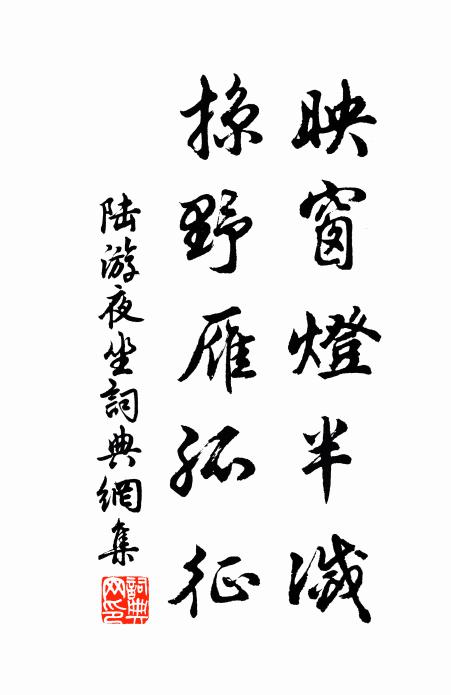 映窗燈半滅
掠野雁孤征
陆游夜坐詞典網集
詞典网印